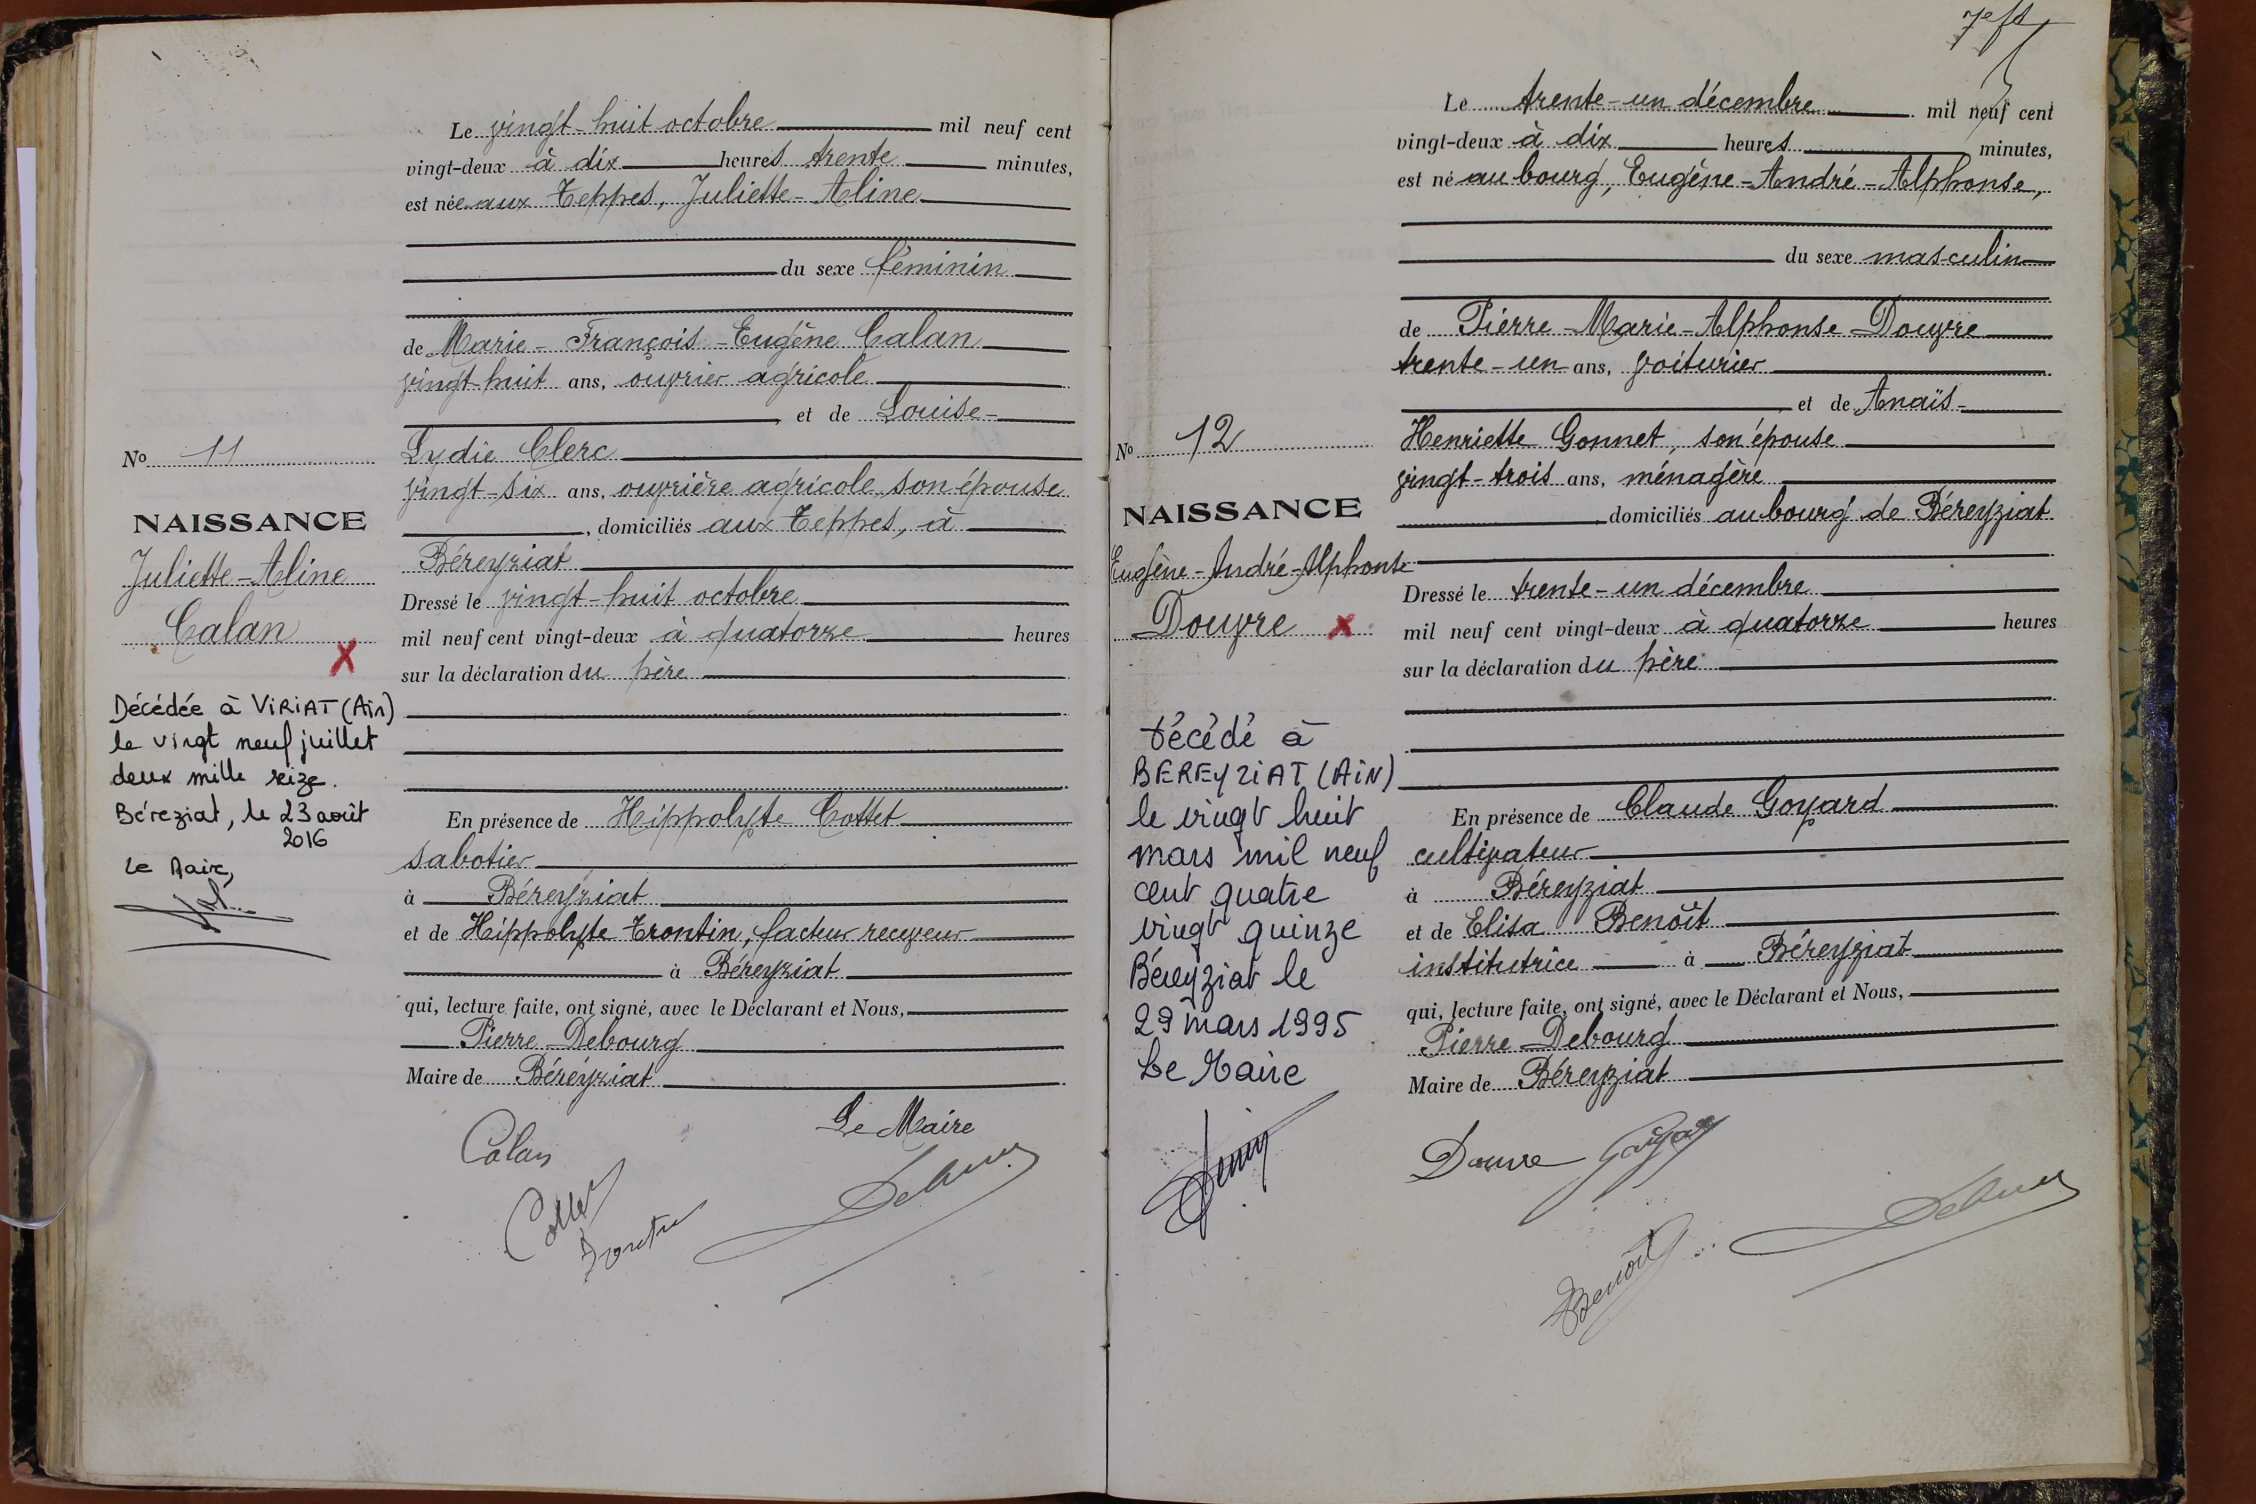 Le vingt-huit octobre mil neuf cent
vingt-deux à dix heures trente minutes,
est née aux Teppes, Juliette-Aline
du sexe féminin
de Marie-François-Eugène Calan
vingt-huit ans, ouvrier agricole
et de Louise-
No 11
Lydie Clerc
vingt-six ans, ouvrière agricole, son épouse
NAISSANCE
, domiciliés aux Teppes, à
Juliette-Aline
Béreyziat
Calan
X
Dressé le vingt-huit octobre
mil neuf cent vingt-deux à quatorze heures
sur la déclaration du père
Décédée à VIRIAT (Ain)
le vingt neuf juillet
deux mille seize.
Béreziat, le 23 août
2016
Le Maire,
En présence de Hippolyte Cottet
sabotier
à Béreyziat
et de Hippolyte Trontin, facteur receveur
à Béreyziat
qui, lecture faite, ont signé, avec le Déclarant et Nous,
Pierre Debourg
Maire de Béreyziat
Le Maire
Calan
Cottet
7e ft
Le trente-un décembre mil neuf cent
vingt-deux à dix heures minutes,
est né au bourg, Eugène-André-Alphonse,
du sexe masculin
de Pierre-Marie-Alphonse Douvre
trente-un ans, voiturier
et de Anaïs-
No 12
Henriette Gonnet, son épouse
vingt-trois ans, ménagère
NAISSANCE
domiciliés au bourg de Béreyziat
Eugène-André-Alphonse
Douvre X
Dressé le trente-un décembre
mil neuf cent vingt-deux à quatorze heures
sur la déclaration du père
Décédé à
BEREYZIAT (AIN)
le vingt huit
mars mil neuf
cent quatre
vingt quinze
Béreyziat le
29 mars 1995
Le Maire
En présence de Claude Goyard
cultivateur
à Béreyziat
et de Elisa Benoît
institutrice à Béreyziat
qui, lecture faite, ont signé, avec le Déclarant et Nous,
Pierre Debourg
Maire de Béreyziat
Douvre Goyard
Benoît